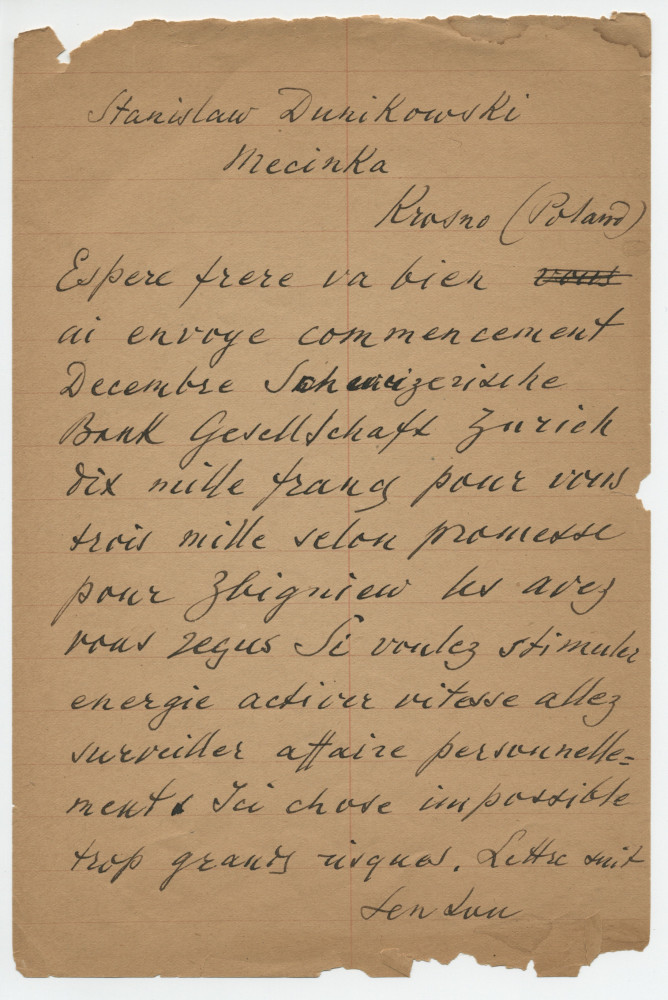 Stanislaw Dunikowski
Mecinka
Krosno (Poland)
Espere frere va bien vous
ai envoye commencement
Decembre Schweizerische
Bank Gesellschaft Zurich
dix mille francs pour vous
trois mille selon promesse
pour Zbigniew les avez
vous reçus Si voulez stimuler
energie activer vitesse allez
surveiller affaire personnelle=
ment Ici chose impossible
trop grands risques. Lettre suit